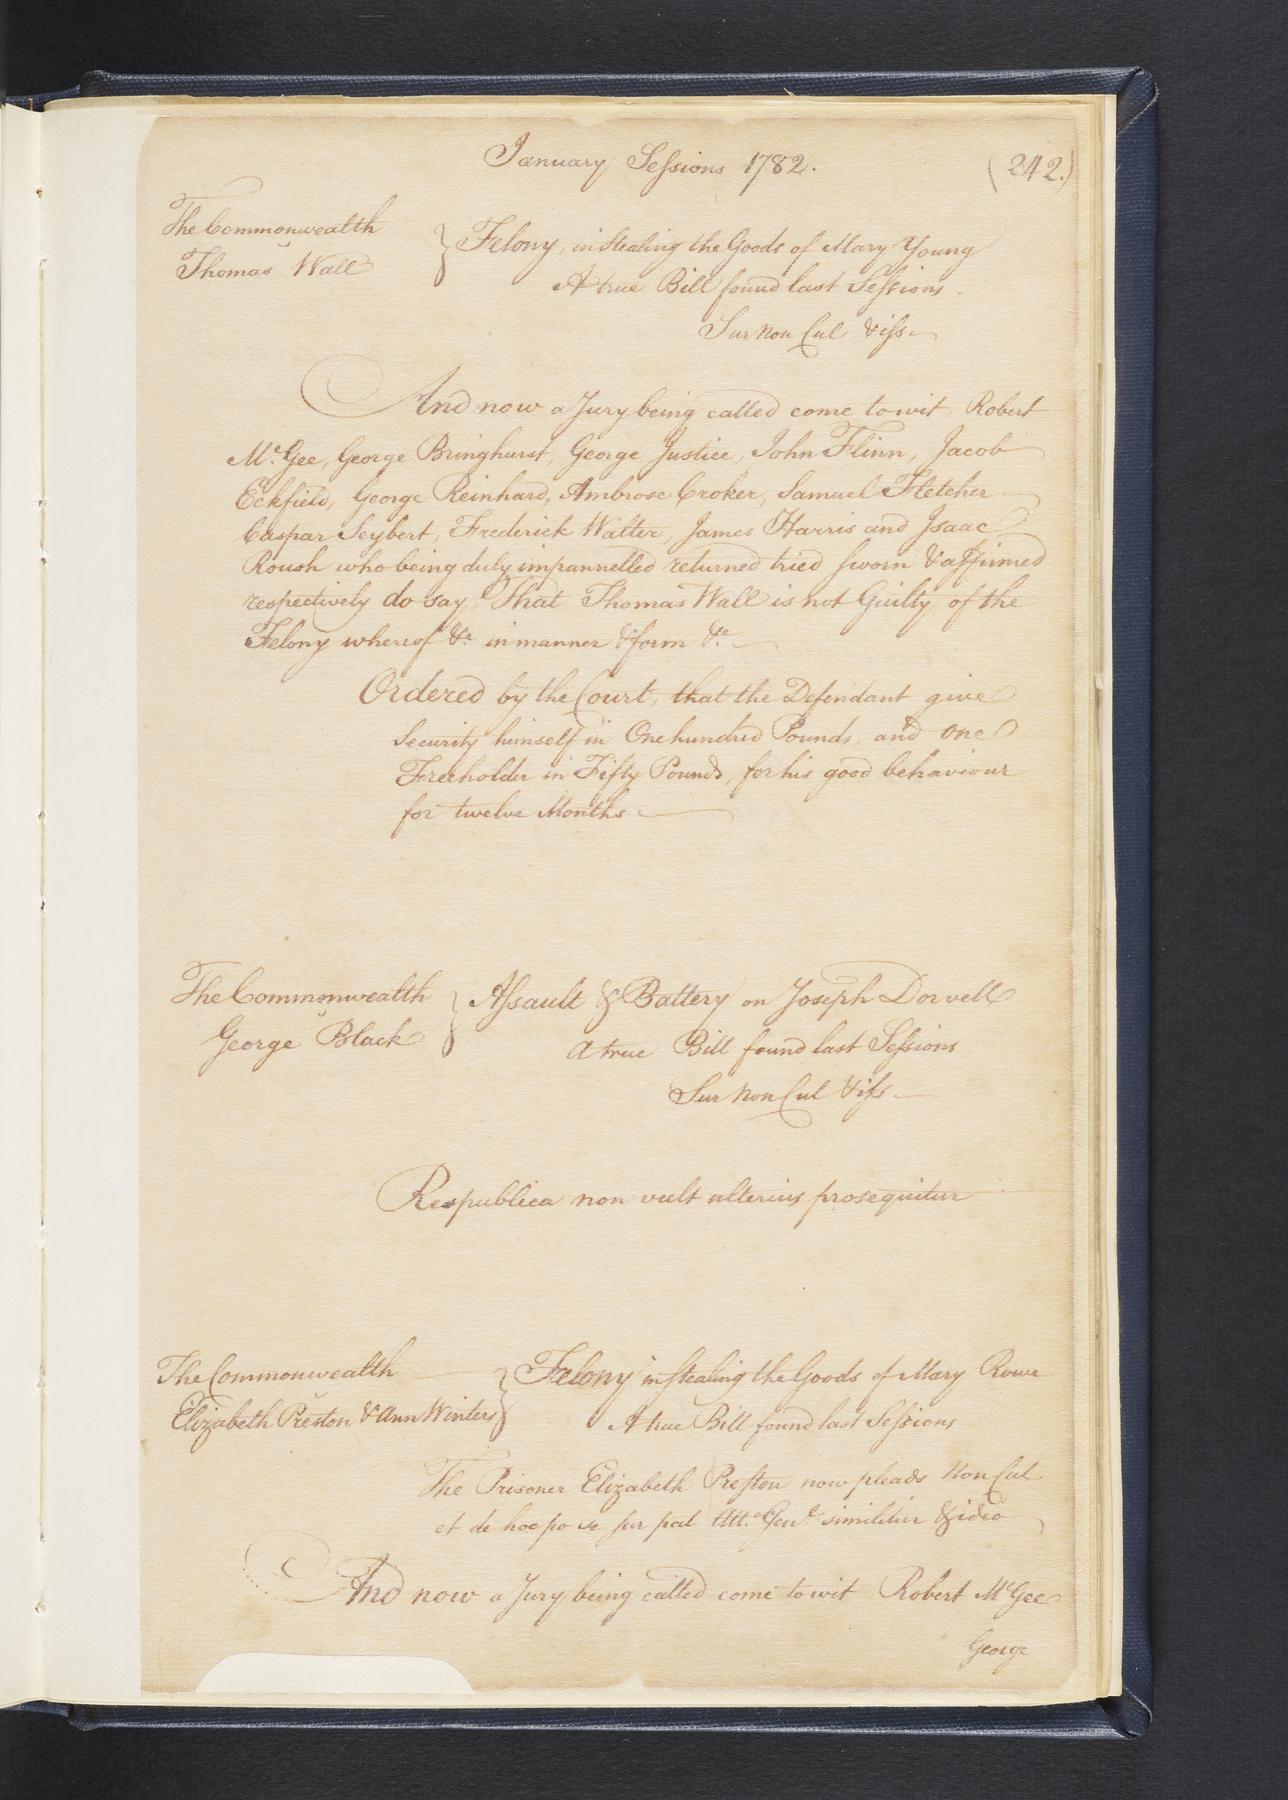 January Sessions 1782.
(242.)
The Commonwealth
v
Thomas Wall
} Felony, in Stealing the Goods of Mary Young
A true Bill found last Sessions.
Sur Non Cul & iss
And now a Jury being called come to wit, Robert
Mc. Gee, George Bringhurst, George Justice, John Flinn, Jacob
Eckfield, George Reinhard, Ambrose Croker, Samuel Fletcher
Caspar Seybert, Frederick Walter, James Harris and Isaac
Roush who being duly impannelled returned tried sworn & affirmed
respectively do say, That Thomas Wall is not Guilty of the
Felony whereof &c. in manner & form &c.
Ordered by the Court, that the Defendant give
Security himself in One hundred Pounds, and one
Freeholder in Fifty Pounds, for his good behaviour
for twelve Months
The Commonwealth
v
George Black
} Assault & Battery on Joseph Dorvell
A true Bill found last Sessions
Sur Non Cul & iss
Respublica non vult ulterius prosequitur
The Commonwealth
v
Elizabeth Preston & Ann Winters
} Felony in stealing the Goods of Mary Rowe
A true Bill found last Sessions
The Prisoner Elizabeth Preston now pleads Non Cul
et de hoc po se sur pat Att. Genl. similiter & ideo
And now a Jury being called come to wit Robert McGee
George